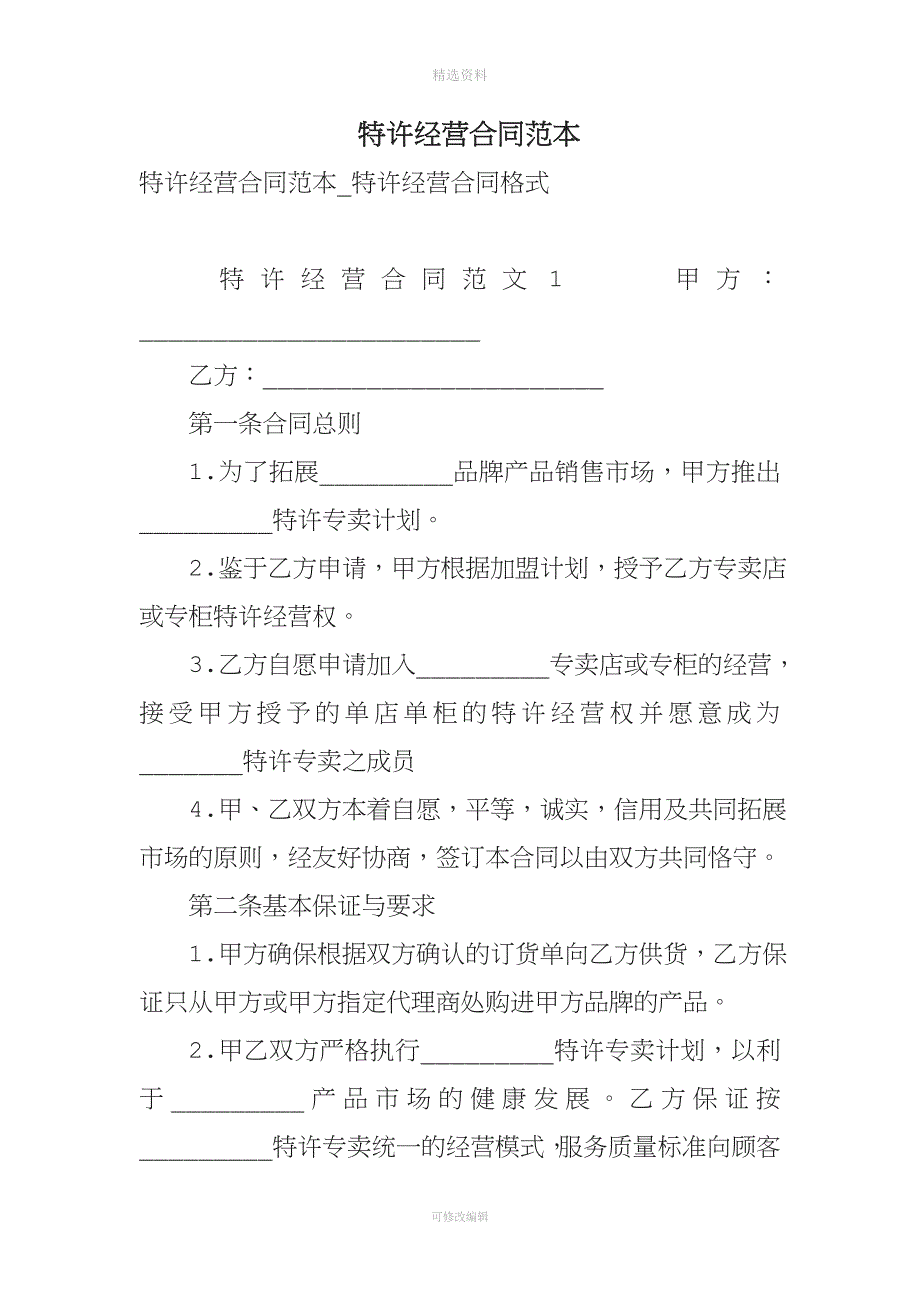 精选资料
特许经营合同范本
特许经营合同范本_特许经营合同格式
特许经营合同范文1 甲方：
_______________________
乙方：_______________________
第一条合同总则
1.为了拓展_________品牌产品销售市场，甲方推出
_________特许专卖计划。
2.鉴于乙方申请，甲方根据加盟计划，授予乙方专卖店
或专柜特许经营权。
3.乙方自愿申请加入_________专卖店或专柜的经营，
接受甲方授予的单店单柜的特许经营权并愿意成为
_______特许专卖之成员
4.甲、乙双方本着自愿，平等，诚实，信用及共同拓展
市场的原则，经友好协商，签订本合同以由双方共同恪守。
第二条基本保证与要求
1.甲方确保根据双方确认的订货单向乙方供货，乙方保
证只从甲方或甲方指定代理商处购进甲方品牌的产品。
2.甲乙双方严格执行_________特许专卖计划，以利
于_________产品市场的健康发展。乙方保证按
_________特许专卖统一的经营模式，服务质量标准向顾客
可修改编辑